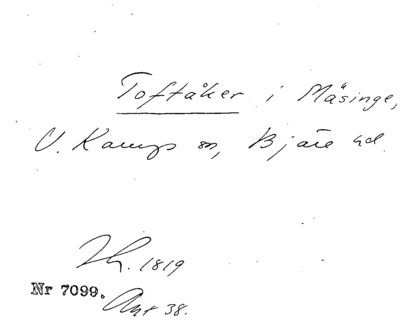 Toftåker i Mäsinge,
V. Karups sn, Bjäre hd.
Lh. 1819
Nr 7099.
Ant 38.